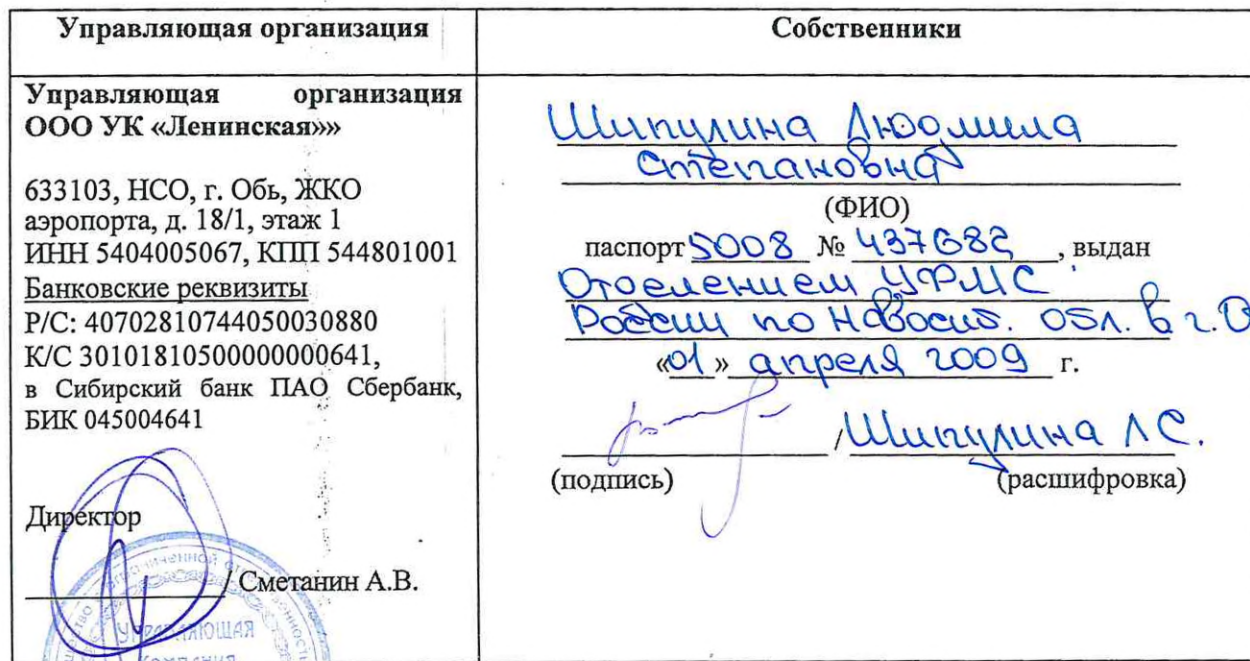 Управляющая организация
Собственники
Управляющая организация
ООО УК «Ленинская»»
633103, НСО, г. Обь, ЖКО
аэропорта, д. 18/1, этаж 1
ИНН 5404005067, КПП 544801001
Банковские реквизиты
Р/С: 40702810744050030880
К/С 30101810500000000641,
в Сибирский банк ПАО Сбербанк,
БИК 045004641
Директор
/ Сметанин А.В.
УПРАВЛЯЮЩАЯ
КОМПАНИЯ
Шипулина Людмила
Степановна
(ФИО)
паспорт 5008 № 437682, выдан
Отделением УФМС
России по Новосиб. обл. в г. О
«01» апреля 2009 г.
/ Шипулина Л С.
(подпись) (расшифровка)